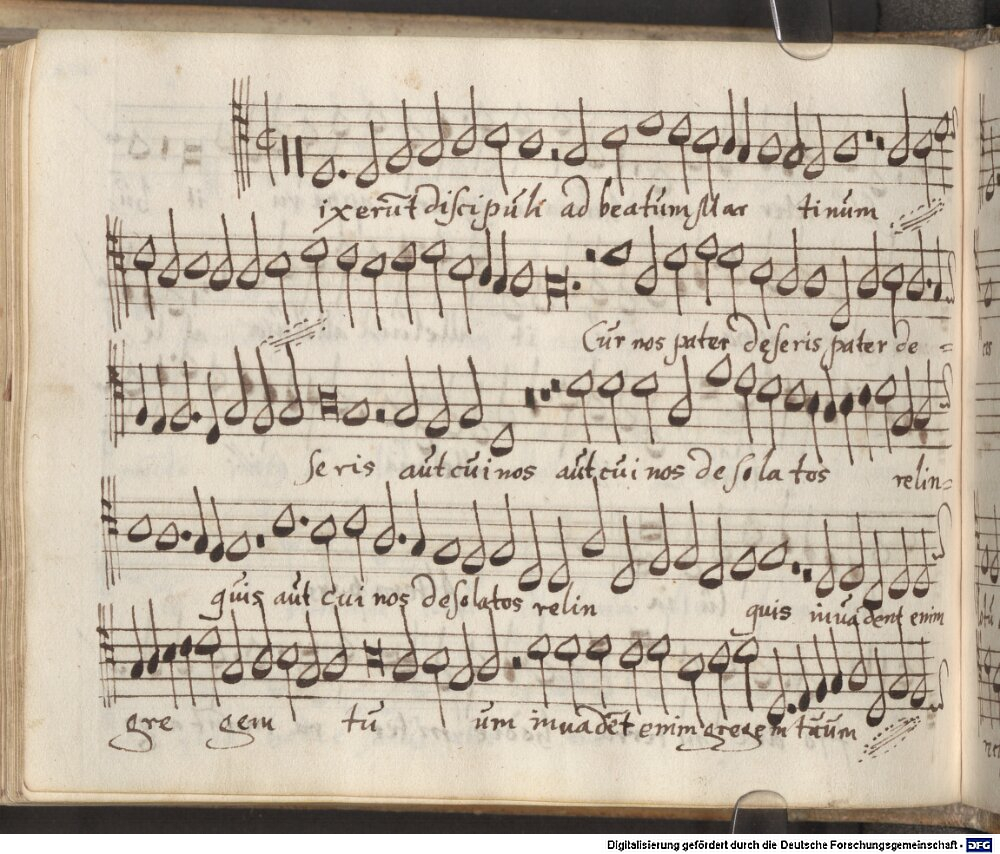 ixerūt discipuli ad beatum Mar tinum
Cur nos pater deseris pater de =
se ris aut cui nos aut cui nos de so la tos relin=
quis aut cui nos desolatos relin quis invadent enim
gre gem tu um invadēt enim gregem tuum
Digitalisierung gefördert durch die Deutsche Forschungsgemeinschaft - DFG